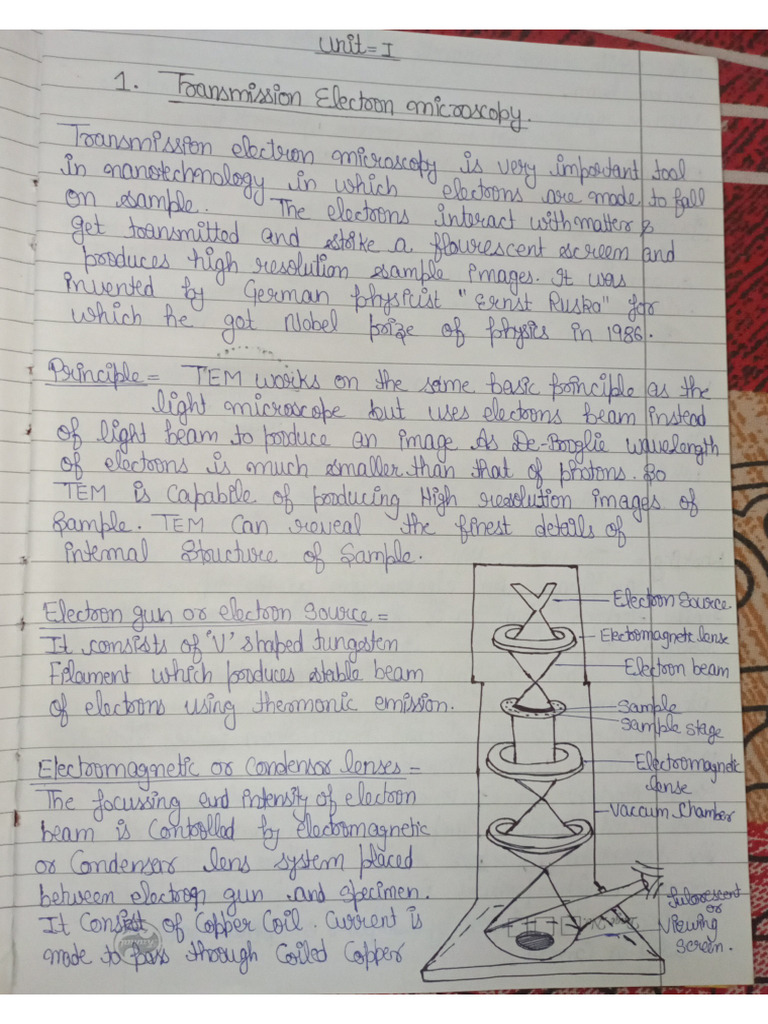 Unit = I
1. Transmission Electron microscopy.
Transmission electron microscopy is very important tool
in nanotechnology in which electrons are made to fall
on sample. The electrons interact with matter &
get transmitted and strike a flourescent screen and
produces high resolution sample images. It was
invented by German physicist "Ernst Ruska" for
which he got Nobel prize of physics in 1986.
Principle = TEM works on the same basic principle as the
light microscope but uses electrons beam instead
of light beam to produce an image As De-Broglie wavelength
of electrons is much smaller than that of photons. So
TEM is capabile of producing High resolution images of
sample. TEM can reveal the finest details of
internal structure of sample.
Electron gun or electron source =
It consists of 'V' shaped tungsten
Filament which produces stable beam
of electrons using thermonic emission.
Electromagnetic or condensor lenses =
The focussing and intensity of electron
beam is controlled by electromagnetic
or condensar lens system placed
between electron gun and specimen.
It consist of copper coil. Current is
made to pass through coiled copper
Electron source
Electromagnetic lense
Electron beam
Sample
Sample stage
Electromagnetic
lense
Vaccum chamber
or
Viewing
screen.